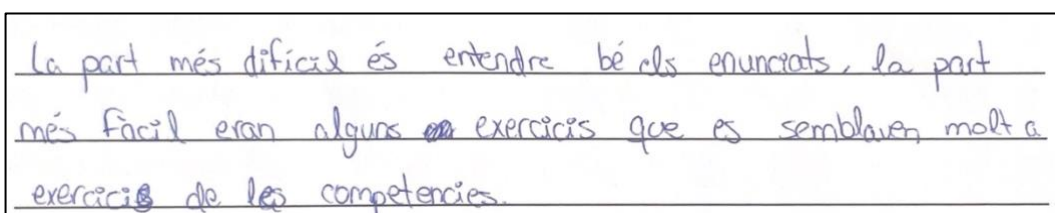 La part més difícil és entendre bé els enunciats, la part
més fàcil eran alguns exercicis que es semblaven molt a
exercicis de les competencies.